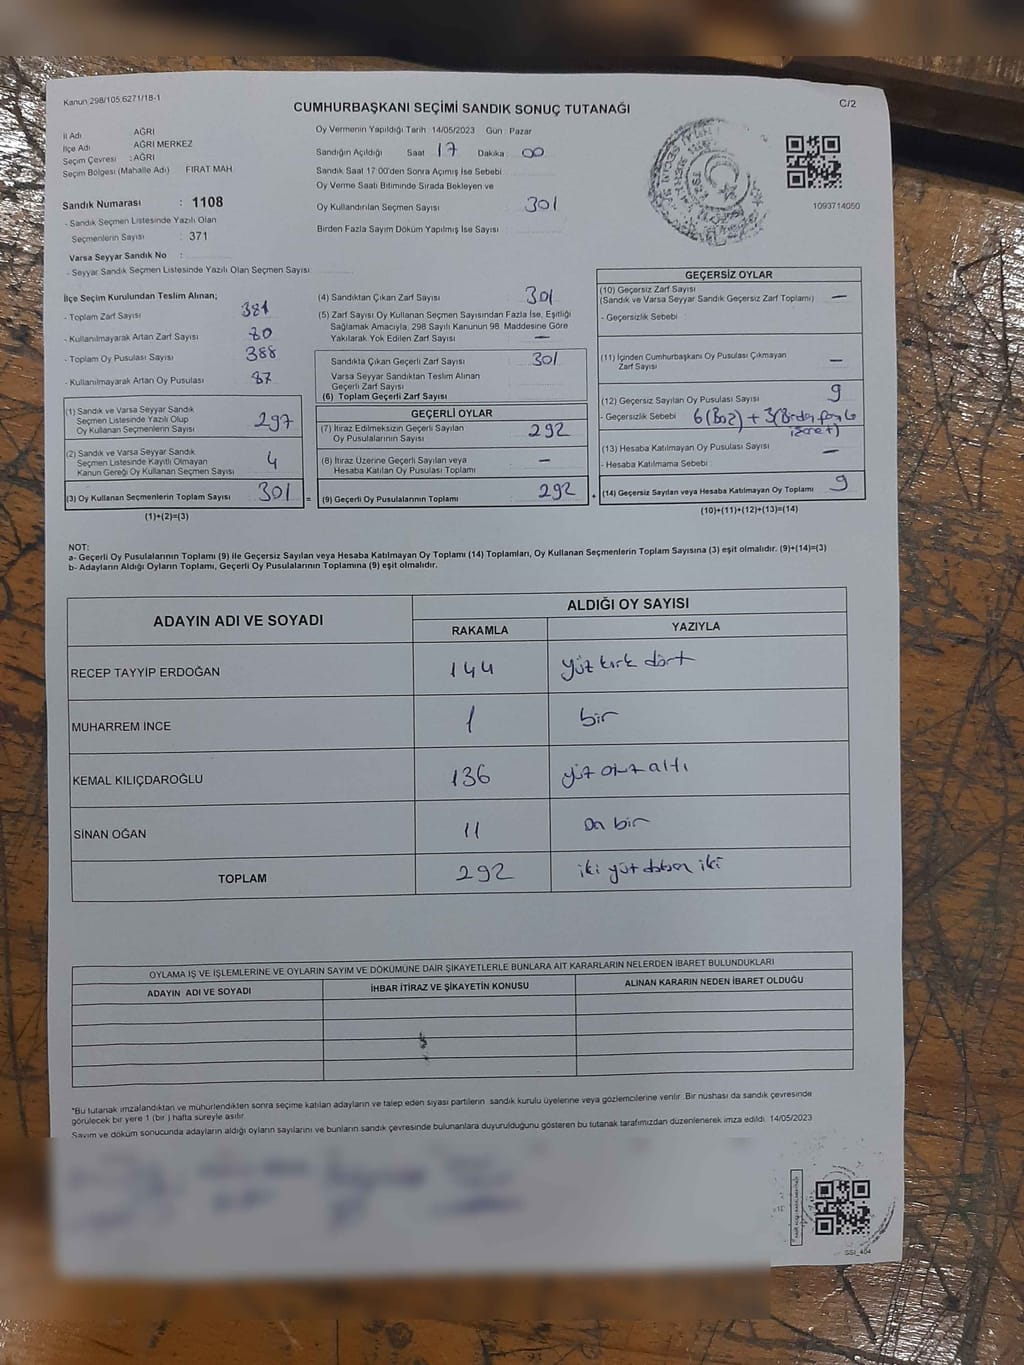 Kanun 298/105,6271/18-1
CUMHURBAŞKANI SEÇİMİ SANDIK SONUÇ TUTANAĞI
C/2
İl Adı AĞRI
İlçe Adı AĞRI MERKEZ
Seçim Çevresi : AĞRI
Seçim Bölgesi (Mahalle Adı) FIRAT MAH
Sandık Numarası : 1108
- Sandık Seçmen Listesinde Yazılı Olan
Seçmenlerin Sayısı : 371
Varsa Seyyar Sandık No :
- Seyyar Sandık Seçmen Listesinde Yazılı Olan Seçmen Sayısı
Oy Vermenin Yapıldığı Tarih 14/05/2023 Gün : Pazar
Sandığın Açıldığı Saat 17 Dakika 00
Sandık Saat 17 00'den Sonra Açımış İse Sebebi
Oy Verme Saati Bitiminde Sırada Bekleyen ve
Oy Kullandırılan Seçmen Sayısı 301
Birden Fazla Sayım Döküm Yapılmış İse Sayısı
1093714050
İlçe Seçim Kurulundan Teslim Alınan;
- Toplam Zarf Sayısı 381
- Kullanılmayarak Artan Zarf Sayısı 80
- Toplam Oy Pusulası Sayısı 388
- Kullanılmayarak Artan Oy Pusulası 87
(1) Sandık ve Varsa Seyyar Sandık
Seçmen Listesinde Yazılı Olup
Oy Kullanan Seçmenlerin Sayısı 297
(2) Sandık ve Varsa Seyyar Sandık
Seçmen Listesinde Kayıtlı Olmayan
Kanun Gereği Oy Kullanan Seçmen Sayısı 4
(3) Oy Kullanan Seçmenlerin Toplam Sayısı 301 =
(1)+(2)=(3)
(4) Sandıktan Çıkan Zarf Sayısı 301
(5) Zarf Sayısı Oy Kullanan Seçmen Sayısından Fazla İse, Eşitliği
Sağlamak Amacıyla, 298 Sayılı Kanunun 98. Maddesine Göre
Yakılarak Yok Edilen Zarf Sayısı —
Sandıkta Çıkan Geçerli Zarf Sayısı 301
Varsa Seyyar Sandıktan Teslim Alınan
Geçerli Zarf Sayısı
(6) Toplam Geçerli Zarf Sayısı
GEÇERLİ OYLAR
(7) İtiraz Edilmeksizin Geçerli Sayılan
Oy Pusulalarının Sayısı 292
(8) İtiraz Üzerine Geçerli Sayılan veya
Hesaba Katılan Oy Pusulası Toplamı —
(9) Geçerli Oy Pusulalarının Toplamı 292
GEÇERSİZ OYLAR
(10) Geçersiz Zarf Sayısı
(Sandık ve Varsa Seyyar Sandık Geçersiz Zarf Toplamı) —
- Geçersizlik Sebebi :
(11) İçinden Cumhurbaşkanı Oy Pusulası Çıkmayan
Zarf Sayısı —
(12) Geçersiz Sayılan Oy Pusulası Sayısı 9
- Geçersizlik Sebebi 6 (Boş) + 3 (Birden fazla
işaret)
(13) Hesaba Katılmayan Oy Pusulası Sayısı —
- Hesaba Katılmama Sebebi :
(14) Geçersiz Sayılan veya Hesaba Katılmayan Oy Toplamı 9
(10)+(11)+(12)+(13)=(14)
NOT:
a- Geçerli Oy Pusulalarının Toplamı (9) ile Geçersiz Sayılan veya Hesaba Katılmayan Oy Toplamı (14) Toplamları, Oy Kullanan Seçmenlerin Toplam Sayısına (3) eşit olmalıdır. (9)+(14)=(3)
b- Adayların Aldığı Oyların Toplamı, Geçerli Oy Pusulalarının Toplamına (9) eşit olmalıdır.
ADAYIN ADI VE SOYADI
ALDIĞI OY SAYISI
RAKAMLA YAZIYLA
RECEP TAYYİP ERDOĞAN 144 yüz kırk dört
MUHARREM İNCE 1 bir
KEMAL KILIÇDAROĞLU 136 yüz otuz altı
SİNAN OĞAN 11 on bir
TOPLAM 292 iki yüz doksan iki
OYLAMA İŞ VE İŞLEMLERİNE VE OYLARIN SAYIM VE DÖKÜMÜNE DAİR ŞİKAYETLERLE BUNLARA AİT KARARLARIN NELERDEN İBARET BULUNDUKLARI
ADAYIN ADI VE SOYADI İHBAR İTİRAZ VE ŞİKAYETİN KONUSU ALINAN KARARIN NEDEN İBARET OLDUĞU
"Bu tutanak imzalandıktan ve mühürlendikten sonra seçime katılan adayların ve talep eden siyasi partilerin sandık kurulu üyelerine veya gözlemcilerine verilir. Bir nüshası da sandık çevresinde
görülecek bir yere 1 (bir ) hafta süreyle asılır.
Sayım ve döküm sonucunda adayların aldığı oyların sayılarını ve bunların sandık çevresinde bulunanlara duyurulduğunu gösteren bu tutanak tarafımızdan düzenlenerek imza edildi. 14/05/2023
SSI_404